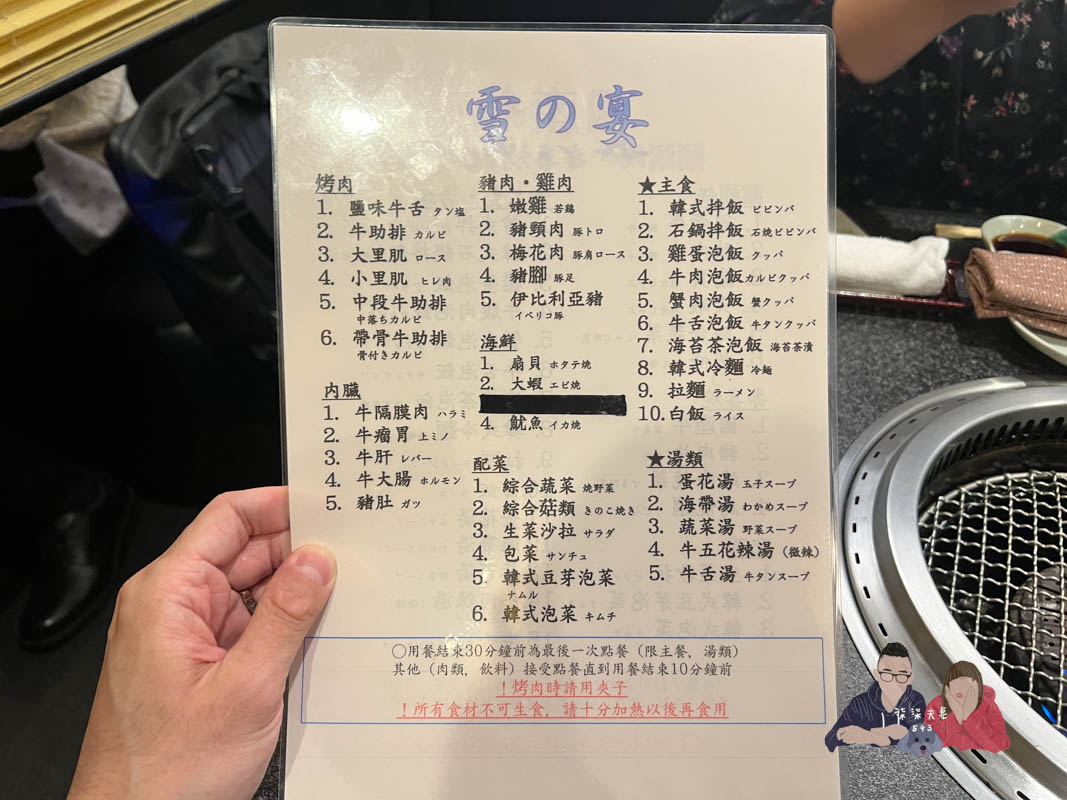 雪の宴
烤肉
1. 鹽味牛舌 タン塩
2. 牛助排 カルビ
3. 大里肌 ロース
4. 小里肌 ヒレ肉
5. 中段牛助排
中落ちカルビ
6. 帶骨牛助排
骨付きカルビ
内臓
1. 牛隔膜肉 ハラミ
2. 牛瘤胃 上ミノ
3. 牛肝 レバー
4. 牛大腸 ホルモン
5. 豬肚 ガツ
豬肉・雞肉
1. 嫩雞 若鶏
2. 豬頸肉 豚トロ
3. 梅花肉 豚肩ロース
4. 豬腳 豚足
5. 伊比利亞豬
イベリコ豚
海鮮
1. 扇貝 ホタテ焼
2. 大蝦 エビ焼
4. 魷魚 イカ焼
配菜
1. 綜合蔬菜 焼野菜
2. 綜合菇類 きのこ焼き
3. 生菜沙拉 サラダ
4. 包菜 サンチュ
5. 韓式豆芽泡菜
ナムル
6. 韓式泡菜 キムチ
★主食
1. 韓式拌飯 ビビンバ
2. 石鍋拌飯 石焼ビビンバ
3. 雞蛋泡飯 クッパ
4. 牛肉泡飯 カルビクッパ
5. 蟹肉泡飯 蟹クッパ
6. 牛舌泡飯 牛タンクッパ
7. 海苔茶泡飯 海苔茶漬
8. 韓式冷麵 冷麺
9. 拉麵 ラーメン
10. 白飯 ライス
★湯類
1. 蛋花湯 玉子スープ
2. 海帶湯 わかめスープ
3. 蔬菜湯 野菜スープ
4. 牛五花辣湯（微辣）
5. 牛舌湯 牛タンスープ
○用餐結束30分鐘前為最後一次點餐（限主餐，湯類）
其他（肉類，飲料）接受點餐直到用餐結束10分鐘前
！烤肉時請用夾子
！所有食材不可生食，請十分加熱以後再食用
柒柒夫妻
543